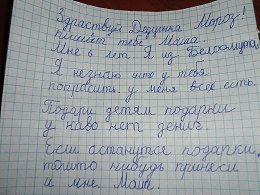 Здраствуй Дедушка Мороз!
пишет тебе Маша
Мне 6 лет Я из Белоомута.
Я незнаю што у тебя
попрасить у меня всё есть.
Подари детям подарки
у каво нет денег.
Если астанутся подарки,
тошто нибудь принеси
и мне. Маша.